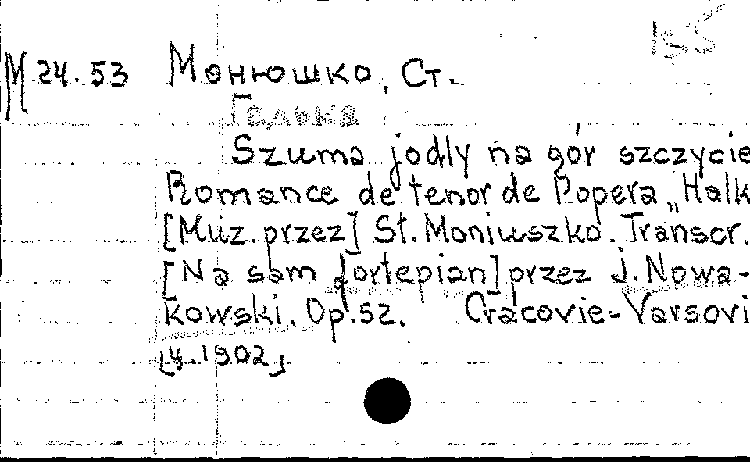 155
М 24.53 Монюшко, Ст.
Галька
Szuma jodły na gór szczycie
Romance de tenor de l'opera „Halk
[Muz. przez] St. Moniuszko. Transcr.
[Na sam fortepian] przez J. Nowa-
kowski. Op. 52. Cracovie-Varsovi
[y. 1902]